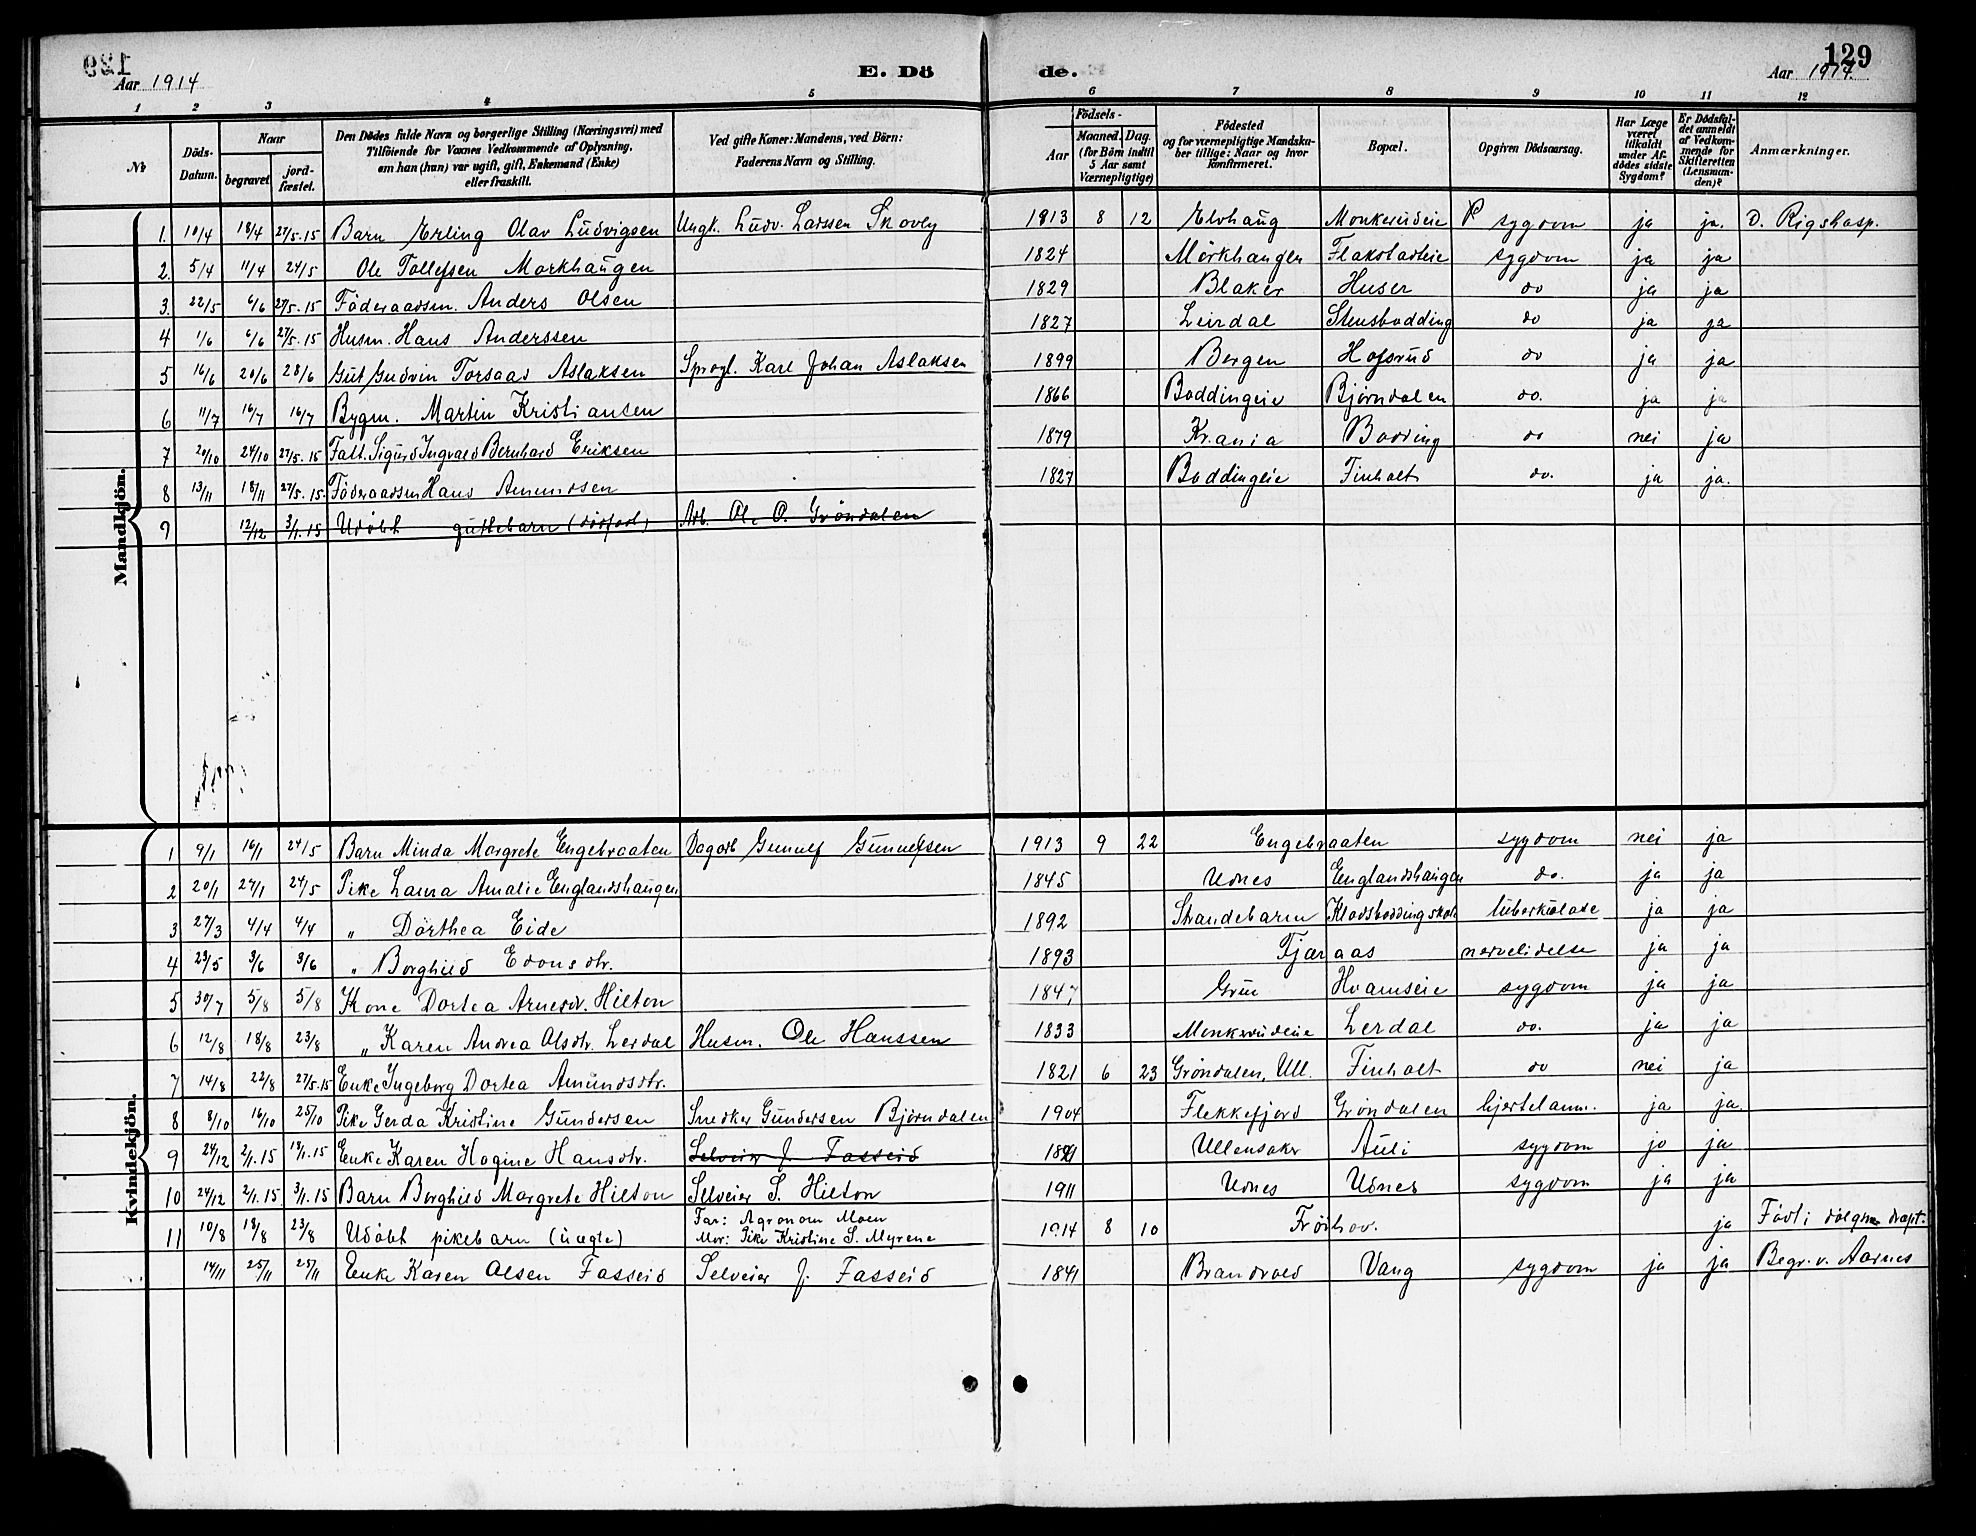 Aar 1914 E. Dö de. 129 Aar 1914.
1 2 3 4 5 6 7 8 9 10 11 12
No Döds-Datum. Naar begravet jord-fæstet. Den Dödes fulde Navn og borgerlige Stilling (Næringsvei) med Tilföiende for Voxnes Vedkommende af Oplysning, om han (hun) var ugift, gift, Enkemand (Enke) eller fraskilt. Ved gifte Koner: Mandens, ved Börn: Faderens Navn og Stilling. Födsels- Aar Maaned. Dag. (for Börn indtil 5 Aar samt Værnepligtige) Födested og for værnepligtige Mandskaber tillige: Naar og hvor konfirmeret. Bopæl. Opgiven Dödsaarsag. Har Læge været tilkaldt under Afdödes sidste Sygdom? Er Dödsfaldet anmeldt af Vedkommende for Skifteretten (Lensmanden)? Anmærkninger.
Mandkjön.
1. 10/4 18/4 27/5.15 Barn Erling Olav Ludvigsen Ungk. Ludv. Larssen Skovly 1913 8 12 Elvhaug Monkerudeie sygdom ja ja. D. Rigshosp.
2. 5/4 11/4 24/5 Ole Tollefsen Morkhaugen 1824 Mörkhaugen Flakstadeie sygdom ja ja
3. 22/5 6/6 27/5.15 Föderaadsm. Anders Olsen 1829 Blaker Huser do ja ja
4 1/6 6/6 27/5.15 Husm. Hans Anderssen 1827 Leirdal Stensbodding do ja ja
5 16/6 20/6 28/6 Gut Gudvin Torsaas Aslaksen Sprogl. Karl Johan Aslaksen 1899 Bergen Hofsrud do ja ja
6 11/7 16/7 16/7 Bygm. Martin Kristiansen 1866 Boddingeie Bjørndalen do. ja ja
7 20/10 24/10 27/5.15 Falt. Sigurd Ingvald Bernhard Eriksen 1879 Kr.ania Bodding do nei ja
8 13/11 18/11 27/5.15. Föderaadsm Hans Amundsen 1827 Boddingeie Finholt do. ja ja.
9 12/12 3/1.15 Udöbt guttebarn (dödfödt) Arb. Ole O. Grøndalen
Kvindekjön.
1 9/1 16/1 24/5 Barn Minda Margrete Engebraaten Dagarb Gunnulf Gunnulfsen 1913 9 22 Engebraaten sygdom nei ja
2 20/1 27/1 24/5 Pike Laura Amalie Englandshaugen 1845 Udnes Englandshaugen do. ja ja
3 27/3 4/4 4/4 " Dorthea Eide 1892 Strandebarm Klodsbodding skole tuberkulose ja ja
4 23/5 3/6 3/6 " Borghild Edonsdtr. 1893 Fjæraas nervelidelse ja ja
5 30/7 5/8 5/8 Kone Dortea Arnesdr. Hilton 1847 Grue Hvamseie sygdom ja ja
6 12/8 18/8 23/8 " Karen Andrea Olsdtr. Lerdal Husm. Ole Hanssen 1833 Monkerudeie Lerdal do. ja ja
7 14/8 22/8 27/5.15 Enke Ingeborg Dortea Amundsdtr. 1821 6 23 Grøndalen, Ull. Finholt do nei ja
8 8/10 16/10 25/10 Pike Gerda Kristine Gundersen Snedker Gundersen Bjørndalen 1904 Flekkefjord Grøndalen hjertelam. ja ja.
9 24/12 2/1.15 18/1.15 Enke Karen Hagine Hansdtr. Selveier J. Fasseid Ullensaker Auli sygdom ja ja
10 24/12 2/1.15 3/1.15 Barn Borghild Margrete Hilton Selveier S. Hilton 1911 Udnes Udnes sygdom ja ja
11 10/8 18/8 23/8 Udöbt pikebarn (uægte) Far: Agronom Moen Mor: Pike Kristine S. Myrene 1914 8 10 Frøihov. ja Födt i dölgsm. dræpt.
14/11 25/11 25/11 Enke Karen Olsen Fasseid Selveier J. Fasseid 1841 Brandvold Vang sygdom ja ja Begr. v. Aarnes